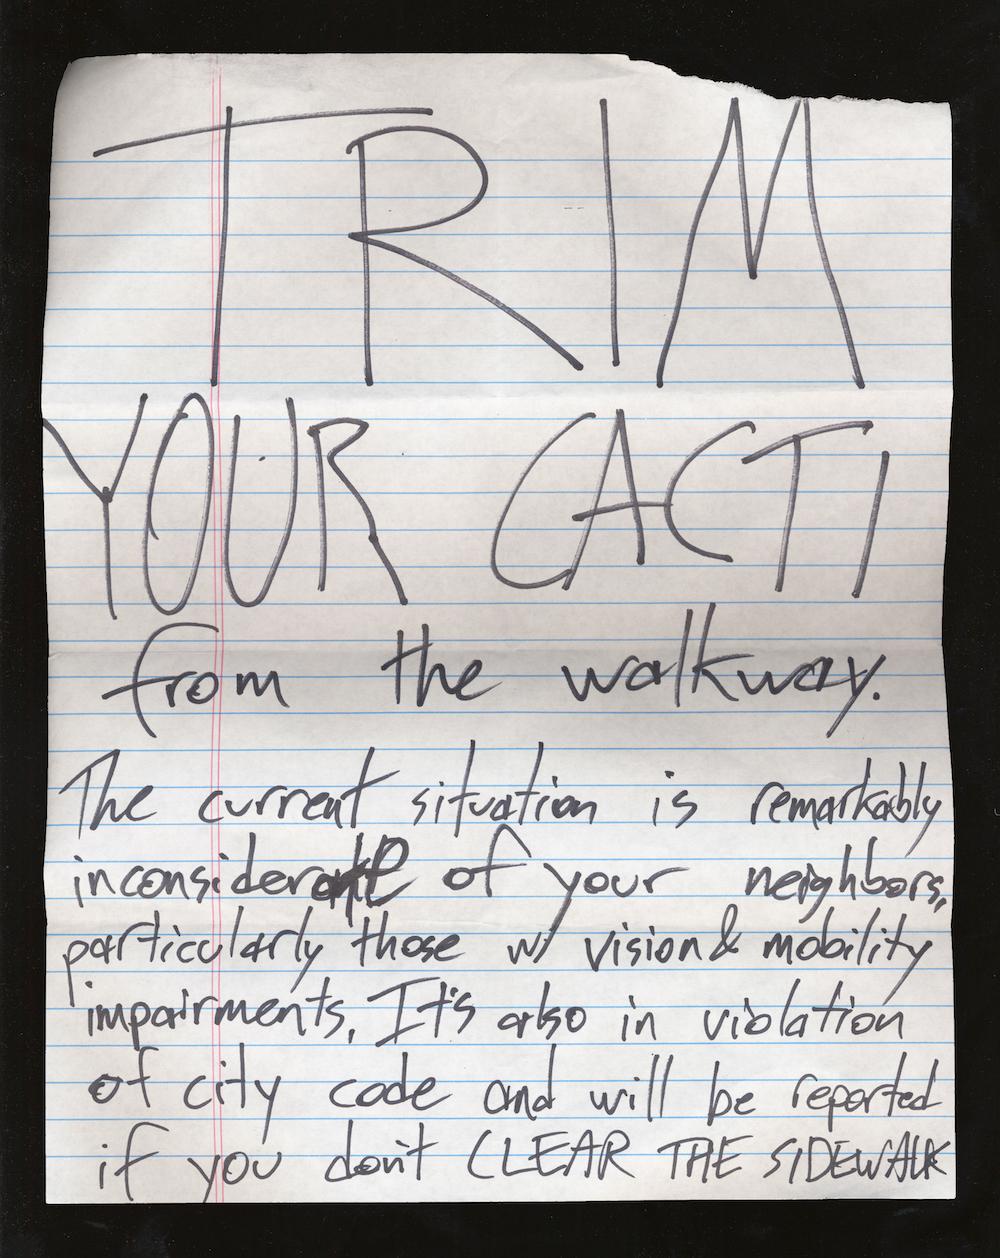 TRIM
YOUR CACTI
from the walkway.
The current situation is remarkably
inconsiderate of your neighbors,
particularly those w/ vision & mobility
impairments. It's also in violation
of city code and will be reported
if you don't CLEAR THE SIDEWALK